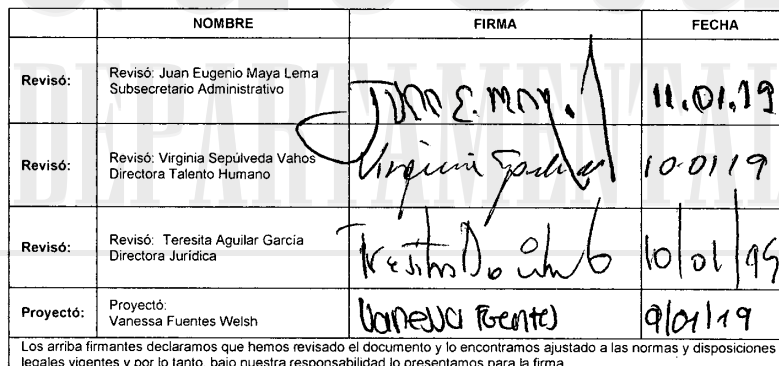 NOMBRE FIRMA FECHA
Revisó: Revisó: Juan Eugenio Maya Lema
Subsecretario Administrativo
Juan E. May. 11.01.19
Revisó: Revisó: Virginia Sepúlveda Vahos
Directora Talento Humano
Virginia 10-01/19
Revisó: Revisó: Teresita Aguilar García
Directora Jurídica
10/01/19
Proyectó: Proyectó:
Vanessa Fuentes Welsh
Vanessa Fuentes 9/01/19
Los arriba firmantes declaramos que hemos revisado el documento y lo encontramos ajustado a las normas y disposiciones
legales vigentes y por lo tanto, bajo nuestra responsabilidad lo presentamos para la firma.
DEPARTAMENTAL